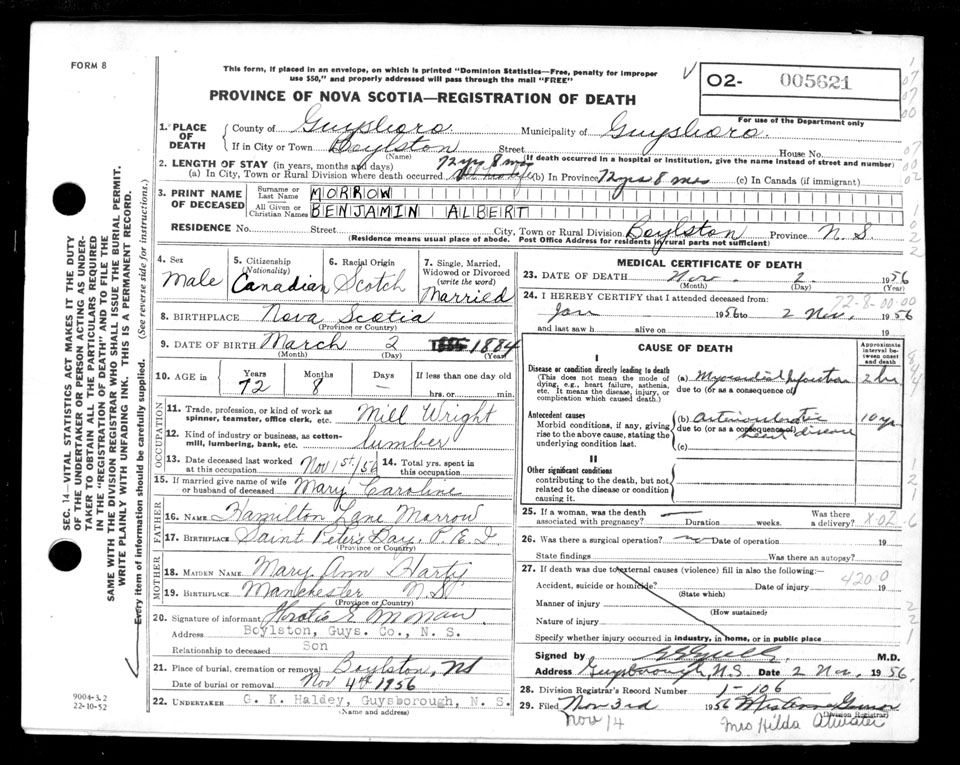 FORM 8
This form, if placed in an envelope, on which is printed "Dominion Statistics—Free, penalty for improper
use $50," and properly addressed will pass through the mail "FREE"
PROVINCE OF NOVA SCOTIA—REGISTRATION OF DEATH
02- 005621
For use of the Department only
1. PLACE OF DEATH
County of Guysboro. Municipality of Guysboro.
If in City or Town Boylston Street House No.
(Name) (If death occurred in a hospital or institution, give the name instead of street and number)
2. LENGTH OF STAY (in years, months and days) 72 yrs 8 mos
(a) In City, Town or Rural Division where death occurred (b) In Province 72 yrs 8 mos (c) In Canada (if immigrant)
3. PRINT NAME OF DECEASED
Surname or Last Name MORROW
All Given or Christian Names BENJAMIN ALBERT
RESIDENCE No. Street City, Town or Rural Division Boylston Province N. S.
(Residence means usual place of abode. Post Office Address for residents in rural parts not sufficient)
4. Sex Male
5. Citizenship (Nationality) Canadian
6. Racial Origin Scotch
7. Single, Married, Widowed or Divorced (write the word) Married
8. BIRTHPLACE Nova Scotia
(Province or Country)
9. DATE OF BIRTH March 2 1884
(Month) (Day) (Year)
10. AGE in Years Months Days If less than one day old
72 8 — hrs. or min.
OCCUPATION
11. Trade, profession, or kind of work as spinner, teamster, office clerk, etc. Mill Wright
12. Kind of industry or business, as cotton-mill, lumbering, bank, etc. lumber
13. Date deceased last worked at this occupation Nov 1st/56
14. Total yrs. spent in this occupation
15. If married give name of wife or husband of deceased Mary Caroline
FATHER
16. NAME Hamilton Lane Morrow
17. BIRTHPLACE Saint Peters Bay, P. E. I
(Province or Country)
MOTHER
18. MAIDEN NAME Mary Ann Harty
19. BIRTHPLACE Manchester N.S.
(Province or Country)
20. Signature of informant
Address Boylston, Guys. Co., N. S.
Relationship to deceased Son
21. Place of burial, cremation or removal Boylston, NS
Date of burial or removal Nov 4th 1956
22. UNDERTAKER G. K. Haldey, Guysborough, N. S.
(Name and address)
MEDICAL CERTIFICATE OF DEATH
23. DATE OF DEATH Nov 2 1956
(Month) (Day) (Year)
24. I HEREBY CERTIFY that I attended deceased from:
72-8-00-00
Jan 1956 to 2 Nov, 1956
and last saw h alive on 19
CAUSE OF DEATH
Approximate interval between onset and death
I
Disease or condition directly leading to death
(This does not mean the mode of dying, e.g., heart failure, asthenia, etc. It means the disease, injury, or complication which caused death.)
(a) Myocardial Infarction 2 hrs
due to (or as a consequence of)
Antecedent causes
Morbid conditions, if any, giving rise to the above cause, stating the underlying condition last.
(b) arteriosclerotic heart disease 10 yrs
due to (or as a consequence of)
(c)
II
Other significant conditions
contributing to the death, but not related to the disease or condition causing it.
25. If a woman, was the death associated with pregnancy? — Duration weeks. Was there a delivery?
26. Was there a surgical operation? no Date of operation 19
State findings Was there an autopsy?
27. If death was due to external causes (violence) fill in also the following:—
4200
Accident, suicide or homicide? Date of injury 19
(State which)
Manner of injury
(How sustained)
Nature of injury
Specify whether injury occurred in industry, in home, or in public place
Signed by M.D.
Address Guysborough, N.S. Date 2 Nov, 1956.
28. Division Registrar's Record Number 1-106
29. Filed Nov 3rd 1956
(Division Registrar)
Nov 14 Mrs Hilda Atwater
SEC. 14—VITAL STATISTICS ACT MAKES IT THE DUTY
OF THE UNDERTAKER OR PERSON ACTING AS UNDER-
TAKER TO OBTAIN ALL THE PARTICULARS REQUIRED
IN THE "REGISTRATION OF DEATH" AND TO FILE THE
SAME WITH THE DIVISION REGISTRAR WHO SHALL ISSUE THE BURIAL PERMIT.
WRITE PLAINLY WITH UNFADING INK. THIS IS A PERMANENT RECORD.
Every item of information should be carefully supplied. (See reverse side for instructions.)
9004-3.2
22-10-52